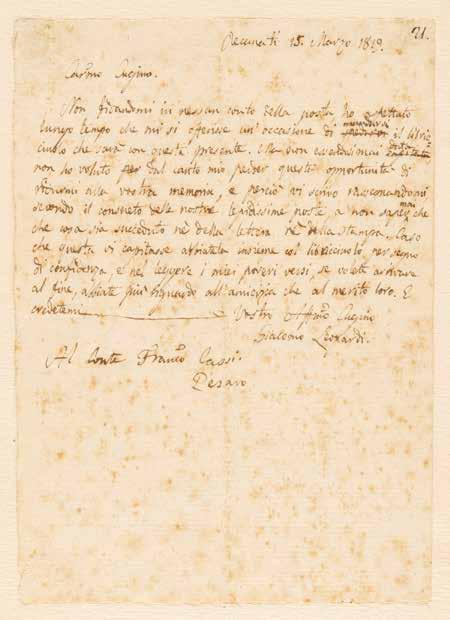 21.
Recanati 15. Marzo 1819.
Carmo Cugino.
Non fidandomi in nessun conto della posta ho aspettato
lungo tempo che mi si offerisse un'occasione di mandarvi il libric-
ciuolo che sarà con questa presente. Ma non essendosi mai data
non ho voluto per dal canto mio perder questa opportunità di
ridurmi alla vostra memoria, e perciò vi scrivo rassegnandomi
secondo il consueto delle nostre lepidissime poste, a non saper mai che
che cosa sia succeduto nè della lettera nè della stampa. Caso
che questa vi capitasse accettatela insieme col libricciuolo, per segno
di confidenza, e nel leggere i miei poveri versi, se volete arrivare
al fine, abbiate più riguardo all'amicizia che al merito loro. E
credetemi
Vostro Affmo Cugino
Giacomo Leopardi.
Al Conte Franco Cassi.
Pesaro